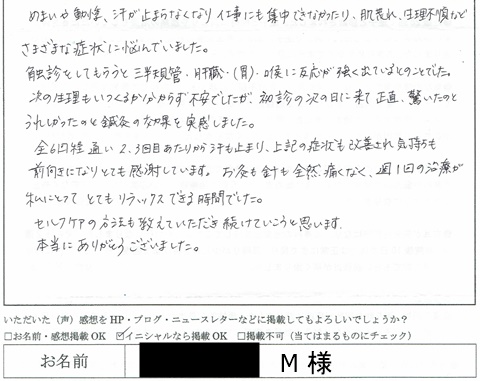 めまいや動悸、汗が止まらなくなり仕事にも集中できなかったり、肌荒れ、生理不順など
さまざまな症状に悩んでいました。
触診をしてもらうと三半規管・肝臓・(胃)・喉に反応が強く出ているとのことでした。
次の生理もいつくるか分からず不安でしたが、初診の次の日に来て正直、驚いたのと
うれしかったのと鍼灸の効果を実感しました。
全6回程通い2、3回目あたりから汗も止まり、上記の症状も改善され気持ちも
前向きになりとても感謝しています。お灸も針も全然痛くなく、週1回の治療が
私にとってとてもリラックスできる時間でした。
セルフケアの方法も教えていただき続けていこうと思います。
本当にありがとうございました。
いただいた(声)感想をHP・ブログ・ニュースレターなどに掲載してもよろしいでしょうか?
□お名前・感想掲載OK ☑イニシャルなら掲載OK □掲載不可(当てはまるものにチェック)
お名前 M様